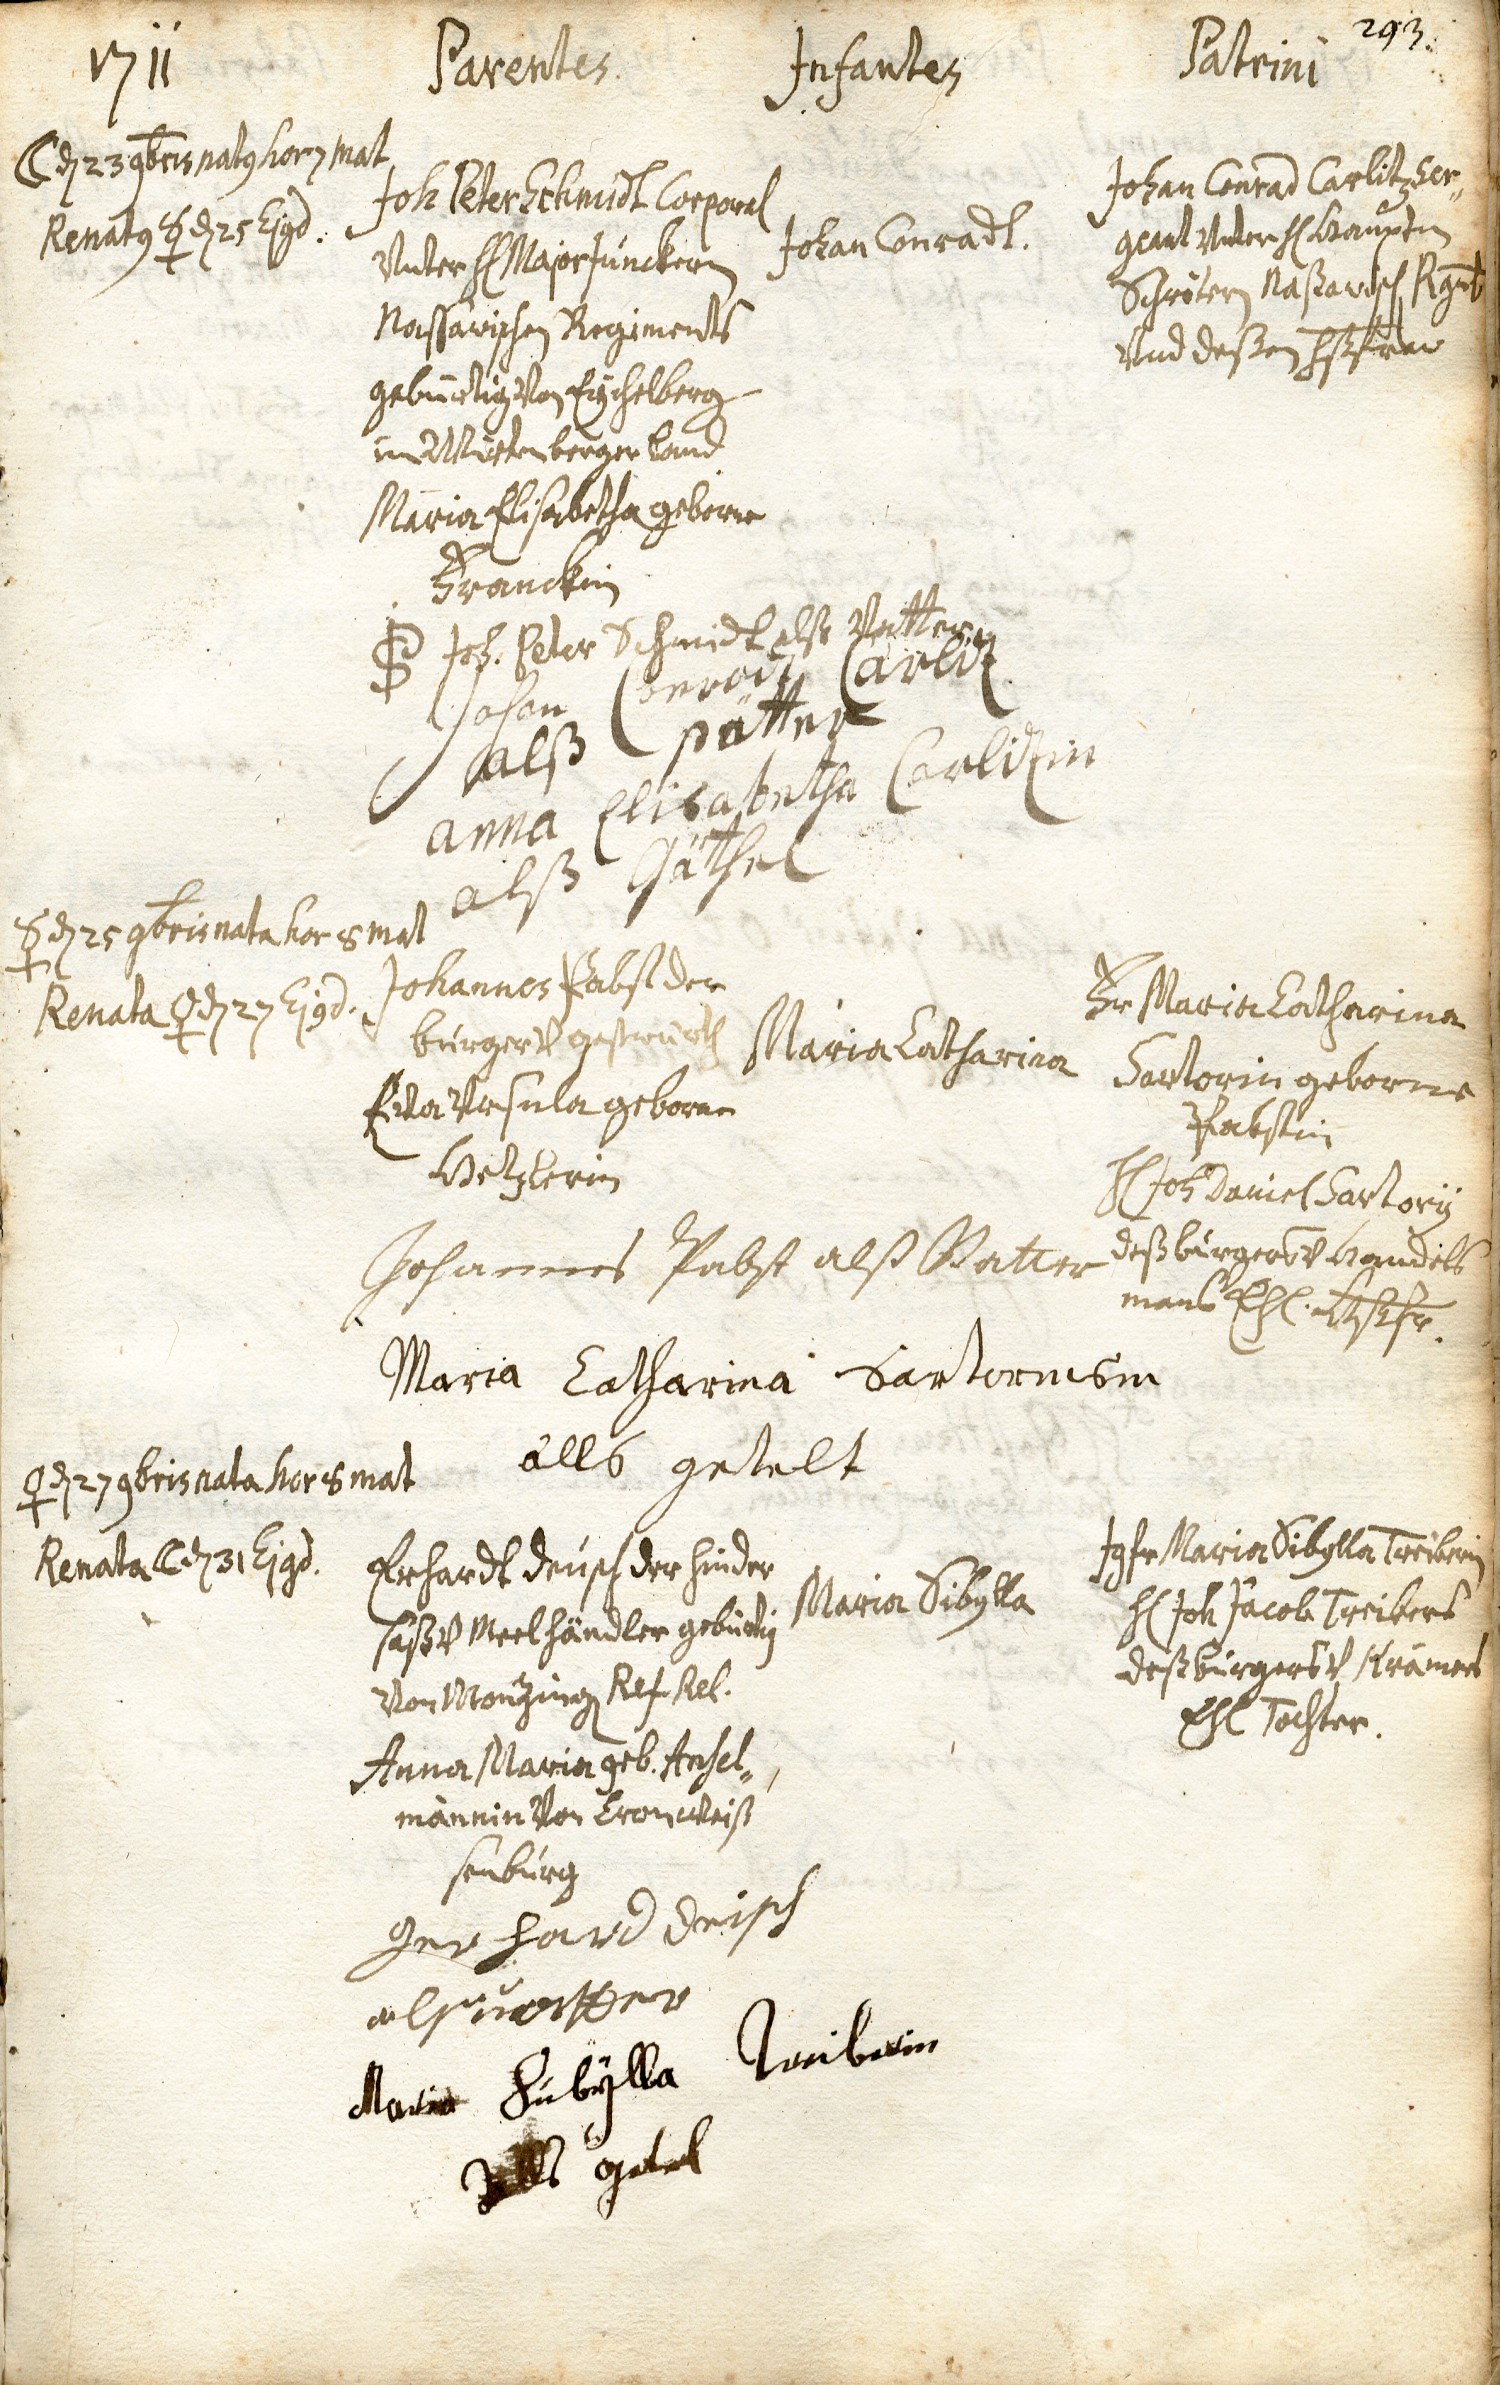 293.
1711 Parentes. Infantes Patrini
☾ d 23 9bris natq hor 7 mat
Renatq ☿ d 25 Ejqd.
Joh Peter Schmidt Corporal
Unter H Major Junckern
Nassawischen Regiments
gebürtig Von Eychelberg
im Würtenberger Land
Maria Elisabetha geborne
Franckin
Johan Conradt.
Johan Conrad Carlitz Ser-
geant Unter H Hauptm
Schrötern Naßawisch Rgmt
Und deßen Hßfraw
Joh. Peter Schmidt alß Vatter
Johan Conradt Carlitz
alß pätter
anna Elisabetha Carlitzin
alß Gäthel
☿ d 25 9bris nata hor 8 mat
Renata ♀ d 27 Ejqd.
Johannes Pabst der
burger V gastwürth
Eva Ursula geborne
Hetzlerin
Maria Catharina
Fr Maria Catharina
Sartorin geborne
Pabstin
H Joh Daniel Sartorij
deß burgers V Handels
mans Ehl. Hßfr.
Johannes Pabst alß Vatter
Maria Catharina Sartoriusin
alls getelt
♀ d 27 9bris nata hor 8 mat
Renata ☾ d 31 Ejqd.
Erhardt Deusch der hinder
saß V Meelhändler gebürtig
Von Montzing Ref. Rel.
Anna Maria geb. Anhel-
männin Von Cronweiß
senburg
Maria Sibylla
Jgfr Maria Sibylla Treiberin
H Joh Jacob Treibers
deß burgers V Krämers
Ehl Tochter.
Gerhard Deisch
als vatter
Maria Sibÿlla Treiberin
alls getel